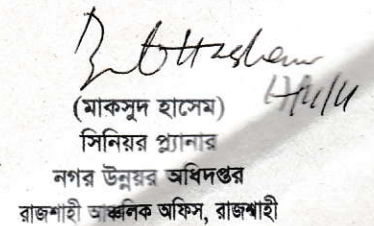 (মাকসুদ হাসেম)
সিনিয়র প্ল্যানার
নগর উন্নয়ন অধিদপ্তর
রাজশাহী আঞ্চলিক অফিস, রাজশাহী